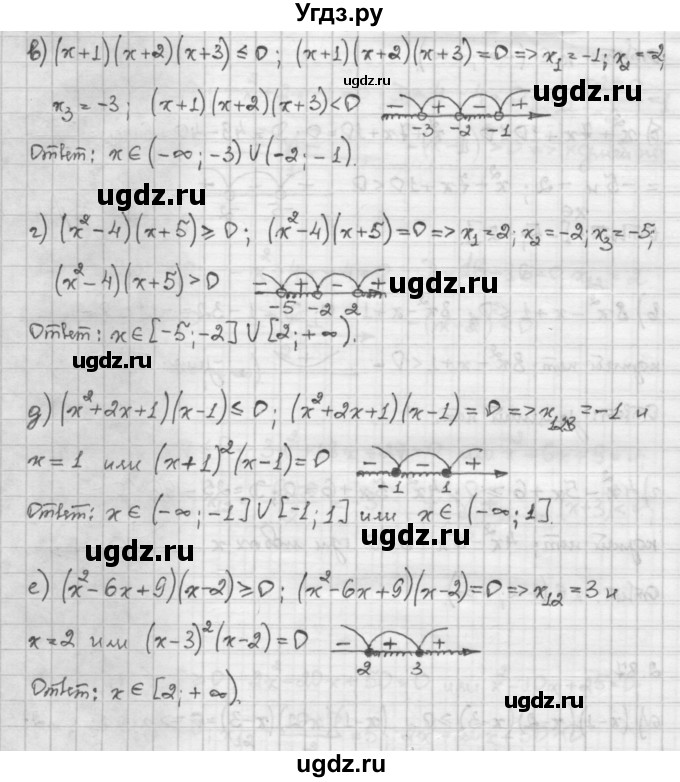 Угдз.ру
в) (x+1)(x+2)(x+3) ≤ 0; (x+1)(x+2)(x+3) = 0 => x₁ = -1; x₂ = -2;
ugdz.ru
x₃ = -3; (x+1)(x+2)(x+3) < 0 - + - +
-3 -2 -1
ugdz.ru
Ответ: x ∈ (-∞; -3) ∪ (-2; -1).
ugdz.ru
г) (x²-4)(x+5) ≥ 0; (x²-4)(x+5) = 0 => x₁ = 2; x₂ = -2; x₃ = -5;
ugdz.ru
(x²-4)(x+5) > 0 - + - +
-5 -2 2
Ответ: x ∈ [-5; -2] ∪ [2; +∞).
ugdz.ru
ugdz.ru
д) (x²+2x+1)(x-1) ≤ 0; (x²+2x+1)(x-1) = 0 => x₁₂ = -1 и
x = 1 или (x+1)²(x-1) = 0 - - +
-1 1
Ответ: x ∈ (-∞; -1] ∪ [-1; 1] или x ∈ (-∞; 1].
ugdz.ru
ugdz.ru
е) (x²-6x+9)(x-2) ≥ 0; (x²-6x+9)(x-2) = 0 => x₁₂ = 3 и
x = 2 или (x-3)²(x-2) = 0 - + +
2 3
Ответ: x ∈ [2; +∞).
ugdz.ru
ugdz.ru
ugdz.ru